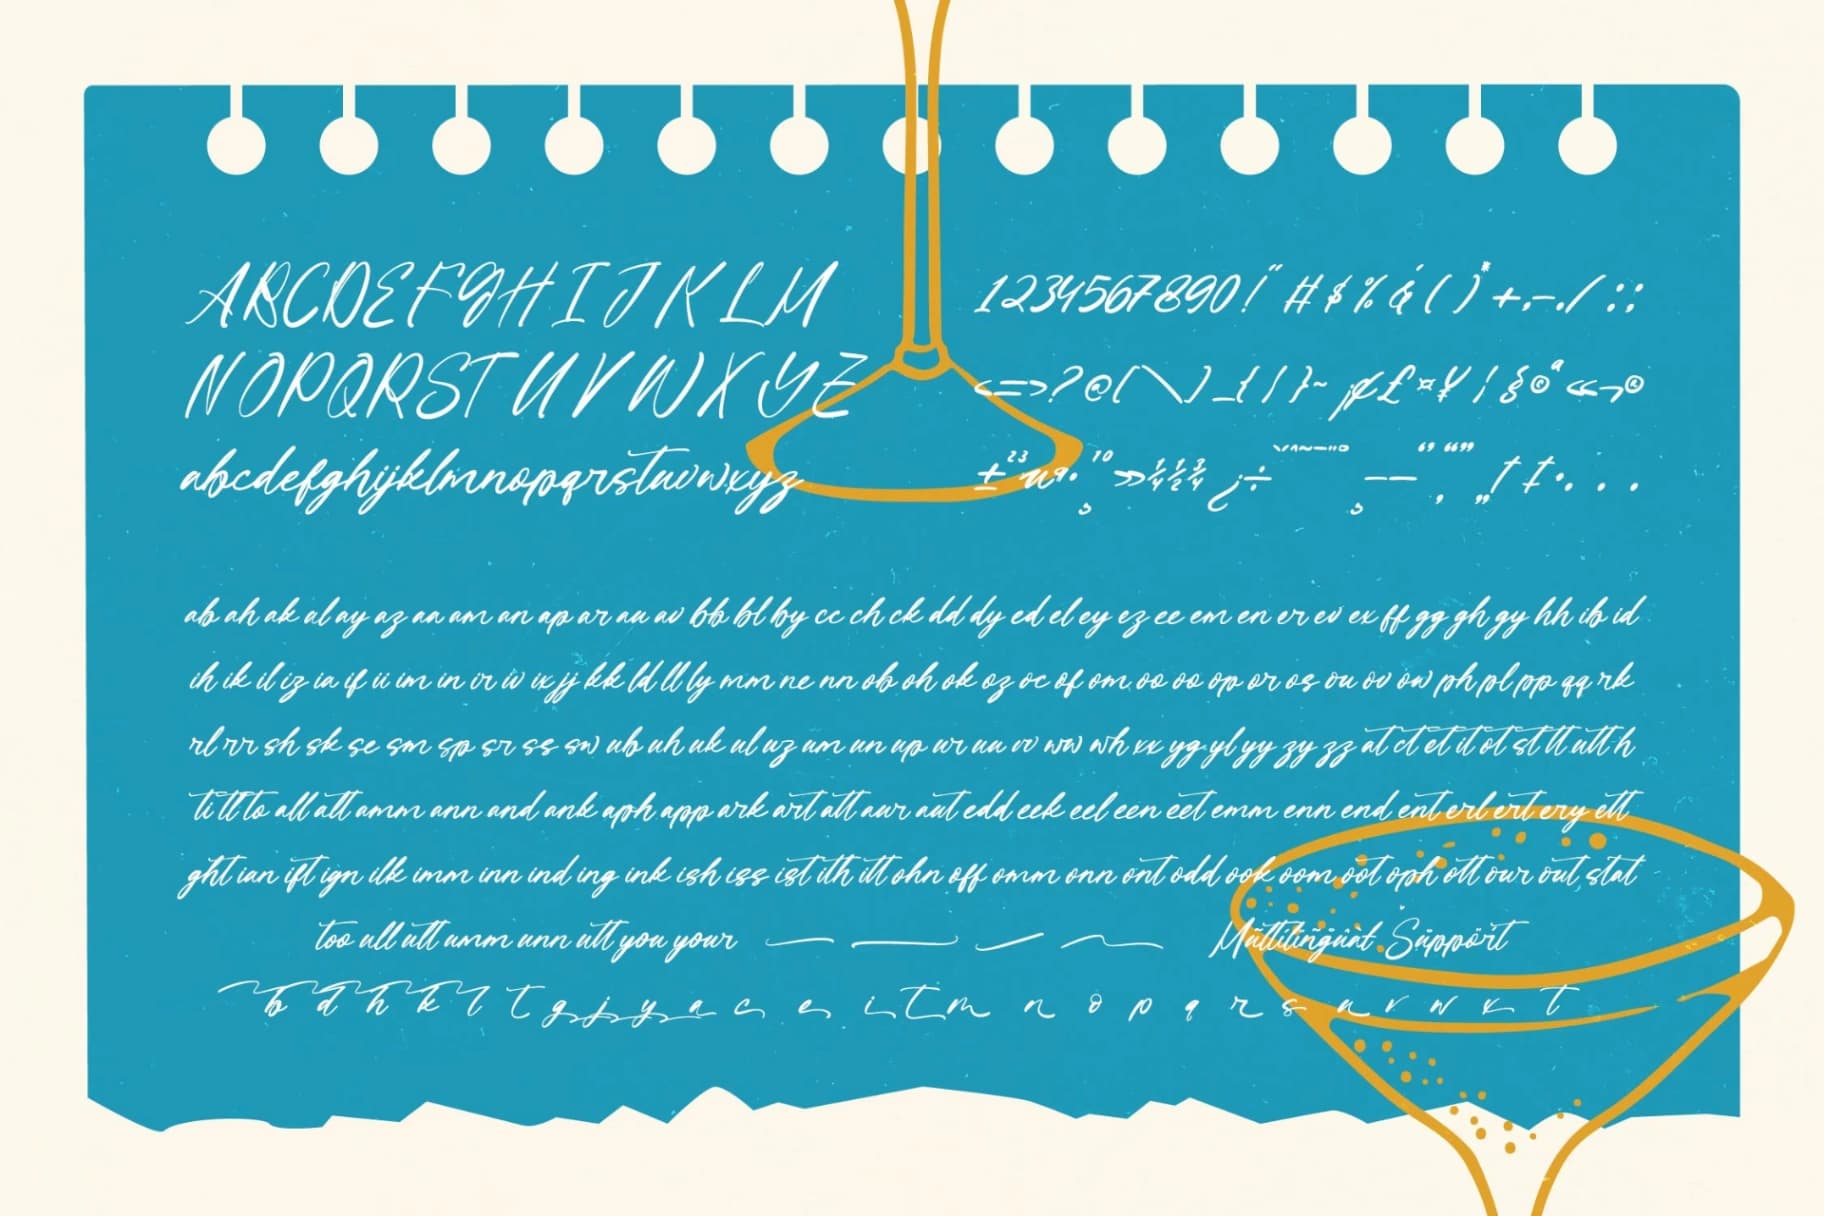 ABCDEFGHIJKLM
NOPQRSTUVWXYZ
abcdefghijklmnopqrstuvwxyz
1234567890!" #$%&()*+,-./:;
<=>?@[\]_{|}~¡¢£¤¥¦§©ª«¬®
±²³µ¶·¸¹º»¼½¾¿÷ ˇ^~¯˙¨˚ ¸ –— ‘’ “” ‚ „ † ‡ • . . .
ab ah ak al ay az aa am an ap ar au av bb bl by cc ch ck dd dy ed el ey ez ee em en er ev ex ff gg gh gy hh ib id
ih ik il iz ia if ii im in ir iv ix jj kk ld ll ly mm ne nn ob oh ok oz oc of om oo oo op or os ou ov ow ph pl pp qq rk
rl rr sh sk se sm sp sr ss sw ub uh uk ul uz um un up ur uu vv ww wh xx yg yl yy zy zz at ct et it ot st tt utt h
ti tl to all att amm ann and ank aph app ark art att aur aut edd eek eel een eet emm enn end ent erl ert ery ett
ght ian ift ign ilk imm inn ind ing ink ish iss ist ith itt ohn off omm onn ont odd ook oom oot oph ott our out stat
too ull ult umm unn utt you your
Multilingual Support
b d h k l t g j y a c e i t m n o p q r s u v w x t